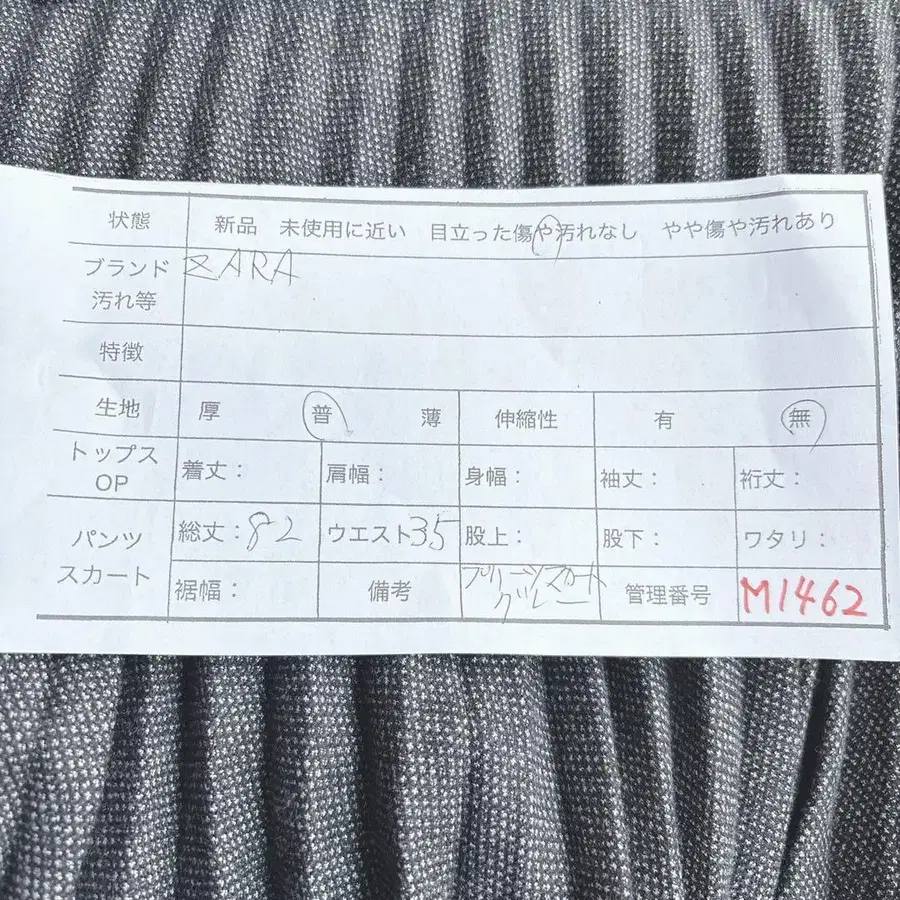 状態 新品 未使用に近い 目立った傷や汚れなし やや傷や汚れあり
ブランド ZARA
汚れ等
特徴
生地 厚 普 薄 伸縮性 有 無
トップス
OP 着丈: 肩幅: 身幅: 袖丈: 裄丈:
パンツ
スカート
総丈:82 ウエスト35 股上: 股下: ワタリ:
裾幅: 備考 プリーツスカート
グレー
管理番号 M1462